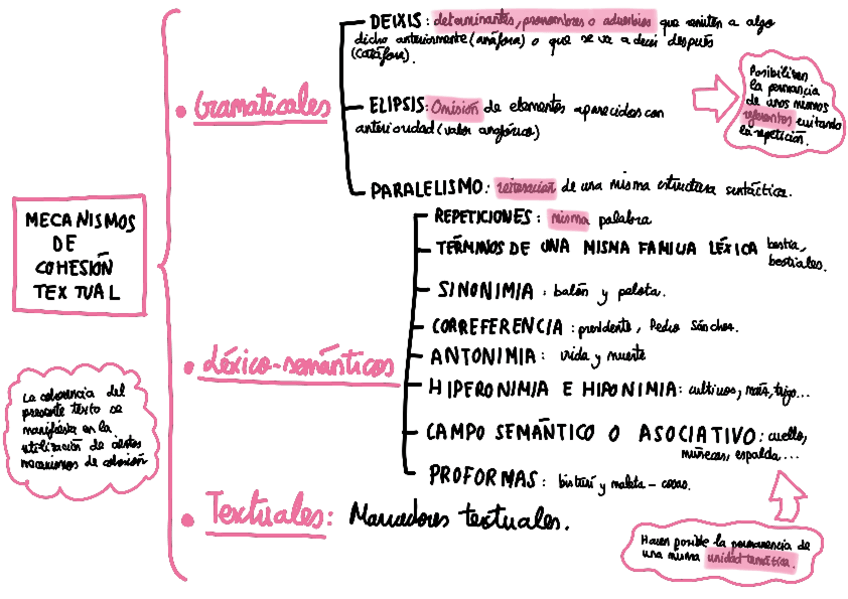 MECANISMOS
DE
COHESIÓN
TEXTUAL
La coherencia del
presente texto se
manifiesta en la
utilización de ciertos
mecanismos de cohesión
• Gramaticales
DEIXIS: determinantes, pronombres o adverbios que remiten a algo
dicho anteriormente (anáfora) o que se va a decir después
(catáfora).
ELIPSIS: Omisión de elementos aparecidos con
anterioridad (valor anafórico)
PARALELISMO: reiteración de una misma estructura sintáctica.
Posibilitan
la permanencia
de unos mismos
referentes evitando
la repetición.
• Léxico-semánticos
REPETICIONES: misma palabra
TÉRMINOS DE UNA MISMA FAMILIA LÉXICA bestia,
bestiales.
SINONIMIA: balón y pelota.
CORREFERENCIA: presidente, Pedro Sánchez.
ANTONIMIA: vida y muerte
HIPERONIMIA E HIPONIMIA: cultivos, maíz, trigo...
CAMPO SEMÁNTICO O ASOCIATIVO: cuello,
muñecas, espalda...
PROFORMAS: bisturí y maleta - cosas.
Hacen posible la permanencia de
una misma unidad temática.
• Textuales: Marcadores textuales.